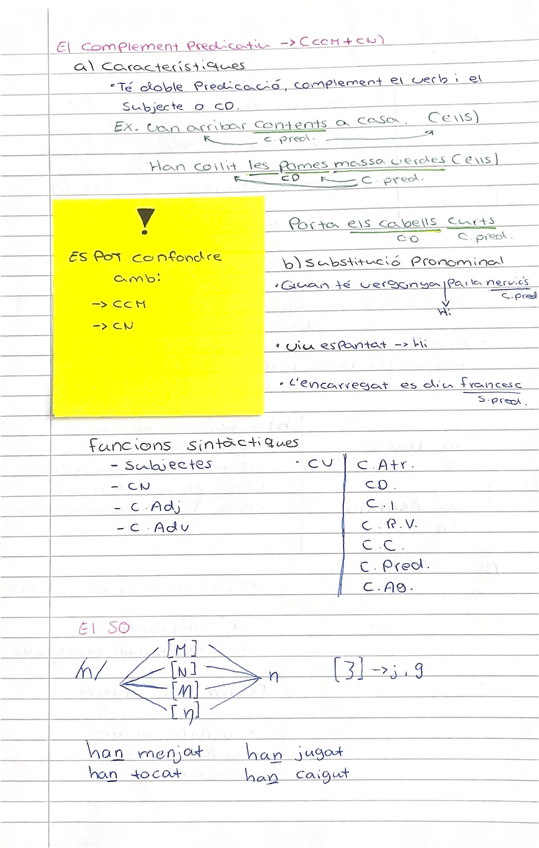 El Complement Predicatiu -> (CCM + CN)
a) Característiques
• Té doble Predicació, complement el verb i el
Subjecte o CD.
Ex. van arribar contents a casa. (ells)
C. pred.
Han collit les pomes massa verdes (ells)
CD C. pred.
Porta els cabells curts
CD C. pred.
!
ES POT confondre
amb:
-> CCM
-> CN
b) Substitució Pronominal
• Quan té vergonya parla nerviós
C. pred
Hi
• Viu espantat -> Hi
• L'encarregat es diu francesc
S. pred.
funcions sintàctiques
- Subjectes
- CN
- C. Adj
- C. Adv
• CV
C. Atr.
CD.
C. I.
C. R.V.
C. C.
C. Pred.
C. Ag.
El SO
/n/
[M]
[N]
[ɱ]
[ŋ]
n
[3] -> j, g
han menjat han jugat
han tocat han caigut